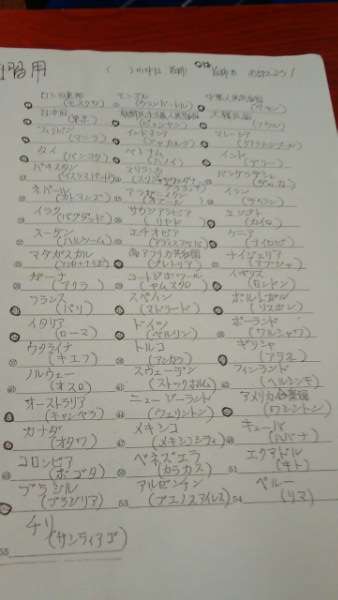 習用
モンゴル
(モスクワ) (ウランバートル) (ペキン)
日本国 朝鮮民主主義人民共和国 大韓民国
(東京) (ピョンヤン) (ソウル)
フィリピン インドネシア マレーシア
(マニラ) (ジャカルタ) (クアラルンプール)
タイ ベトナム インド
(バンコク) (ハノイ) (デリー)
パキスタン スリランカ バングラデシュ
(イスラマバード) (ダッカ)
ネパール アフガニスタン イラン
(カトマンズ) (カブール) (テヘラン)
イラク サウジアラビア エジプト
(バグダッド) (リヤド) (カイロ)
スーダン エチオピア ケニア
(ハルツーム) (アジスアベバ) (ナイロビ)
マダガスカル 南アフリカ共和国 ナイジェリア
(プレトリア) (アブジャ)
ガーナ コートジボワール イギリス
(アクラ) (ヤムスクロ) (ロンドン)
フランス スペイン ポルトガル
(パリ) (マドリード) (リスボン)
イタリア ドイツ ポーランド
(ローマ) (ベルリン) (ワルシャワ)
ウクライナ トルコ ギリシャ
(キエフ) (アンカラ) (アテネ)
ノルウェー スウェーデン フィンランド
(オスロ) (ストックホルム) (ヘルシンキ)
オーストラリア ニュージーランド アメリカ合衆国
(キャンベラ) (ウェリントン) (ワシントン)
カナダ メキシコ キューバ
(オタワ) (メキシコシティ) (ハバナ)
コロンビア ベネズエラ エクアドル
(ボゴタ) (カラカス) (キト)
ブラジル アルゼンチン ペルー
(ブラジリア) 53 (ブエノスアイレス) 54 (リマ)
チリ
55 (サンティアゴ)